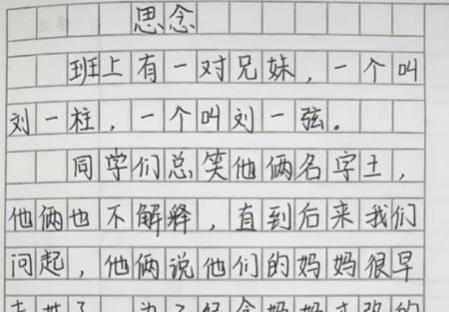 思念
班上有一对兄妹，一个叫
刘一柱，一个叫刘一弦。
同学们总笑他俩名字土，
他俩也不解释，直到后来我们
问起，他俩说他们的妈妈很早
去世了 为了纪念妈妈才改的